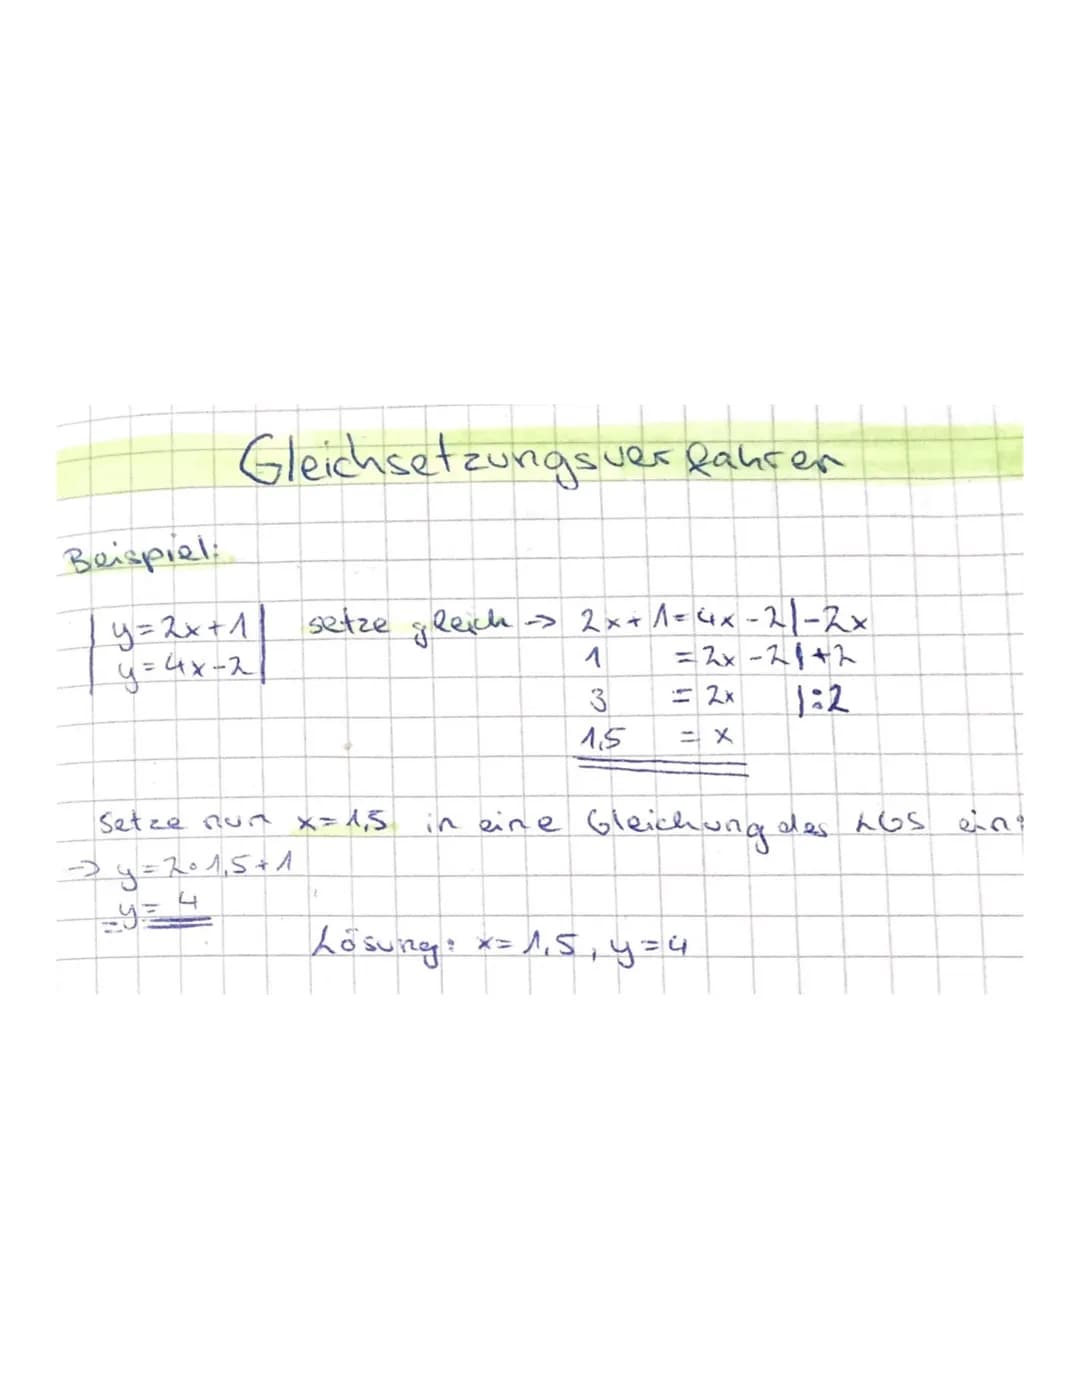 Gleichsetzungsverfahren
Beispiel:
| y=2x+1 | setze gleich -> 2x+1=4x-2 |-2x
| y=4x-2 | 1 =2x-2 |+2
3 = 2x |:2
1,5 = x
Setze nun x=1,5 in eine Gleichung des LGS ein:
-> y=2·1,5+1
=y= 4
Lösung: x=1,5, y=4